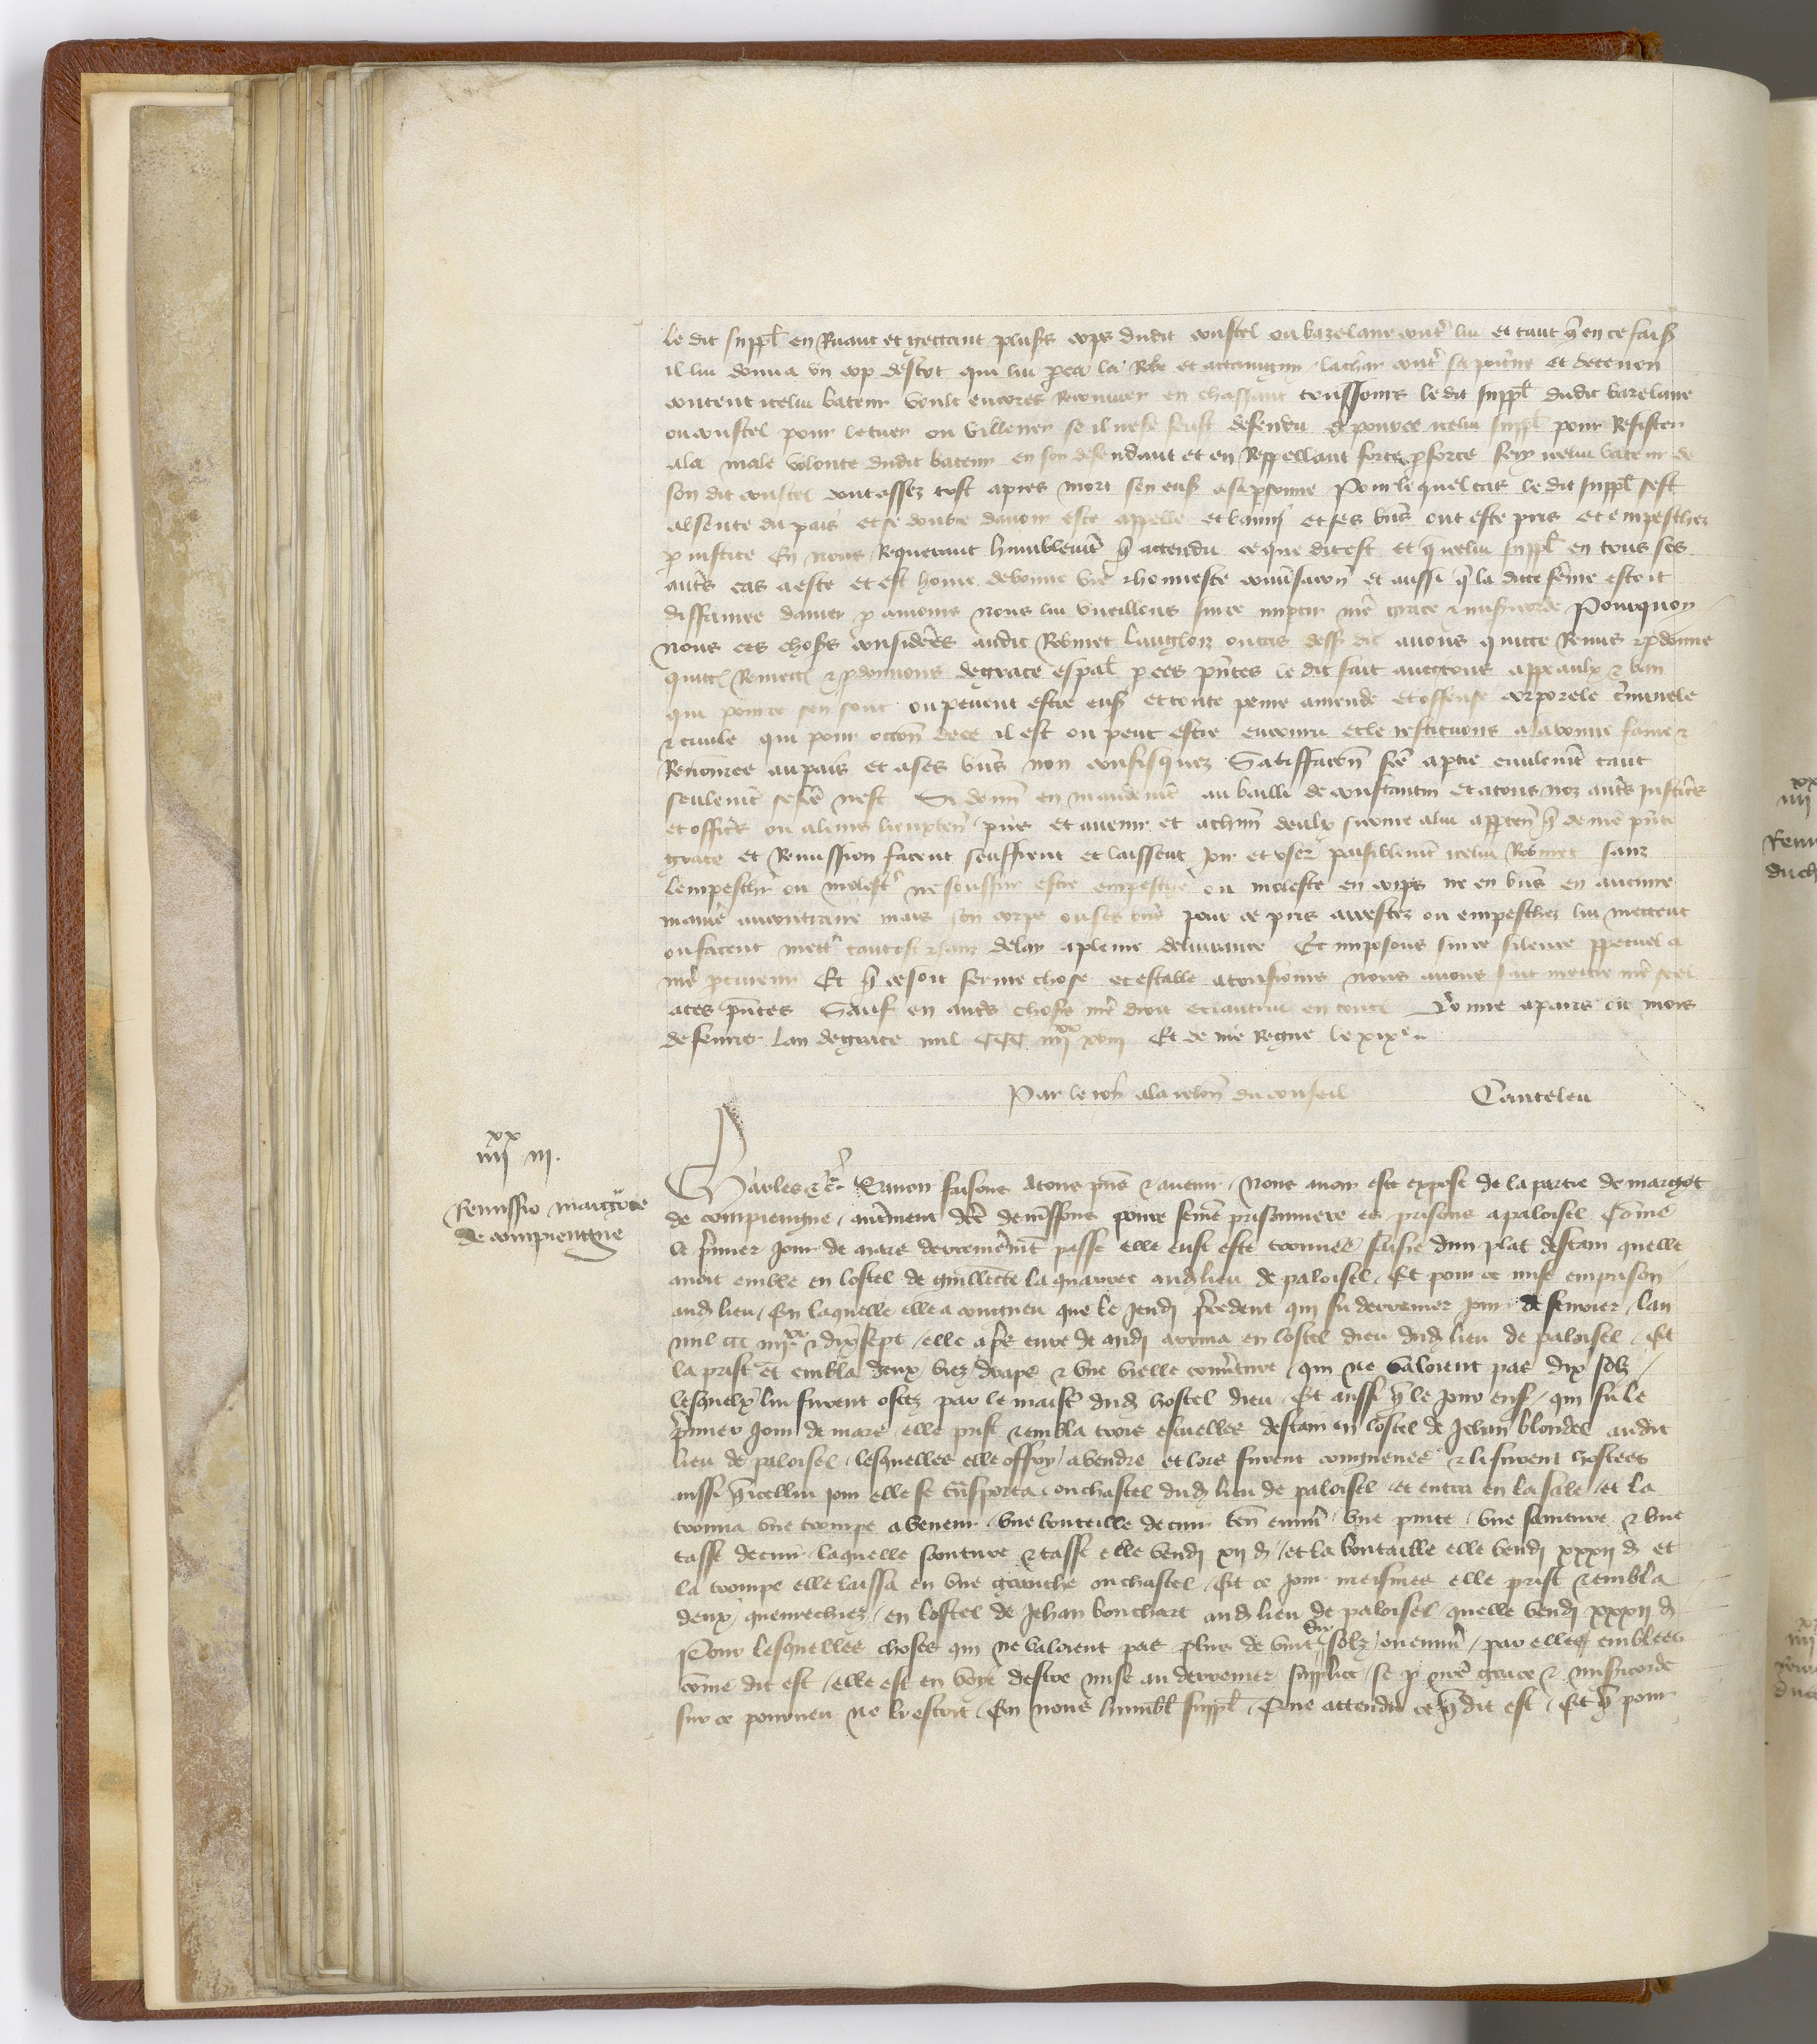 le dit suppl en Ruant et gectant plus's cops dudit coustel ou bazelaire contr lui et tant q en ce fais
il lui donna un cop destoc qui lui pca la Robe et actaingny lachar contr sa poitrine et de ce non
content icelui bateur voult encores Recouvrer en chassant tousjours le dit suppl dudit bazelaire
ou coustel pour le tuer ou villener se il ne se feust defendu Et pource icelui suppl pour Resister
ala male volonte dudit bateur en son defendant et en Reppellant force p force fery icelui bateur de
son dit coustel dont assez tost apres mort sen ens a sa psonne Pour lequel cas le dit suppl sest
absente du pais et se doubte davoir este appelle et banny et ses bns ont este pris et empeschez
p justice En nous Requerant humblemt q attendu ce que dit est et q icelui suppl en tous ses
autrs cas a este et est home de bonne vie & honneste convsacon et aussi q la dicte feme estoit
diffamee damer p amours nous lui vueillons sur ce impartir nre grace & misicorde Pourquoy
nous ces choses considerees audit Robinet Langlois ou cas dess dit avons quicte Remis & pdonne
quictons Remectons & pdonnons de grace espal p ces pntes le dit fait avecques appeaulx & ban
qui pour ce sen sont ou pevent estre ens et toute peine amende et offense corporele criminele
& civile qui pour occon de ce il est ou peut estre encouru et le restituons a la bonne fame &
Renomee au pais et a ses bns non confisquez Satisffacon fce a ptie civilemt tant
seulemt se fce nest Si donn en mandemt au bailli de coustantin et a tous noz autrs justicrs
et officrs ou a leurs lieuxten pns et avenir et a chun deulx sicome a lui apptendra q de nre pnte
grace et Remission facent seuffrent et laissent joir et user paisiblemt icelui Robinet sanz
lempeschr ou molestr ne souffrir estre empeschie ou moleste en corps ne en bns en aucune
manie au contraire mais son corps ou ses bns pour ce pris arrestez ou empeschez lui mettent
ou facent mettr tantost & sanz delay a pleine delivrance Et imposons sur ce silence ppetuel a
nre pcureur Et q ce soit ferme chose et estable a tousjours nous avons fait mettre nre scel
a ces pntes Sauf en autrs choses nre droit et lautrui en toutes Donne a paris ou mois
de fevrier lan de grace mil CCC IIIIxx xviii Et de nre Regne le xixe
Par le roy a la relon du conseil Canteleu
xx
iiii iii.
Remissio margote
de compiengne
Charles &c. Savoir faisons a tous pns & avenir Nous avoir este expose de la partie de margot
de compiengne autrement dce de mssons povre feme prisonniere es prisons a paloisel Come
le pmier jour de mars derrenieremt passe elle eust este trouvee saisie dun plat destain quelle
avoit emble en lostel de guillecte la quarree aud lieu de paloisel Et pour ce mise em prison
aud lieu En laquelle elle a congneu que le jeudi precedent qui fu derrenier jour de fevrier lan
mil ccc iiiixx & dixsept elle aps eure de midi arriva en lostel dieu dud lieu de paloisel Et
la prist et embla deux viez draps & une vielle couverture qui ne valoient pas dix solz
lesquelx lui furent ostez par le maistre dud hostel dieu Et aussi q le jour ens qui fu le
pmier jour de mars elle prist & embla trois escuelles destain en lostel de Jehan blondel audit
lieu de paloisel lesquelles elle offry a vendre et lors furent congneues & li furent hostees
aussi q icellui jour elle se transporta ou chastel dud lieu de paloisel et entra en la sale et la
trouva une trompe a veneur une bouteille de cuir ten envir une pinte une sainture & une
tasse de cuir laquelle sainture & tasse elle vendi xii d et la boutaille elle vendi xxxii d et
la trompe elle laissa en une granche ou chastel Et ce jour meismes elle prist & embla
deux quevrechiez en lostel de Jehan bouchart aud lieu de paloisel quelle vendi xxxii d
Pour lesquelles choses qui ne valoient pas plus de vint dix solz ou envir par elle emblees
come dit est elle est en voye destre mise au derrenier supplice se p nre grace & misicorde
sur ce pourveu ne li estoit En nous humbl suppl Que attendu ce q dit est Et q pour